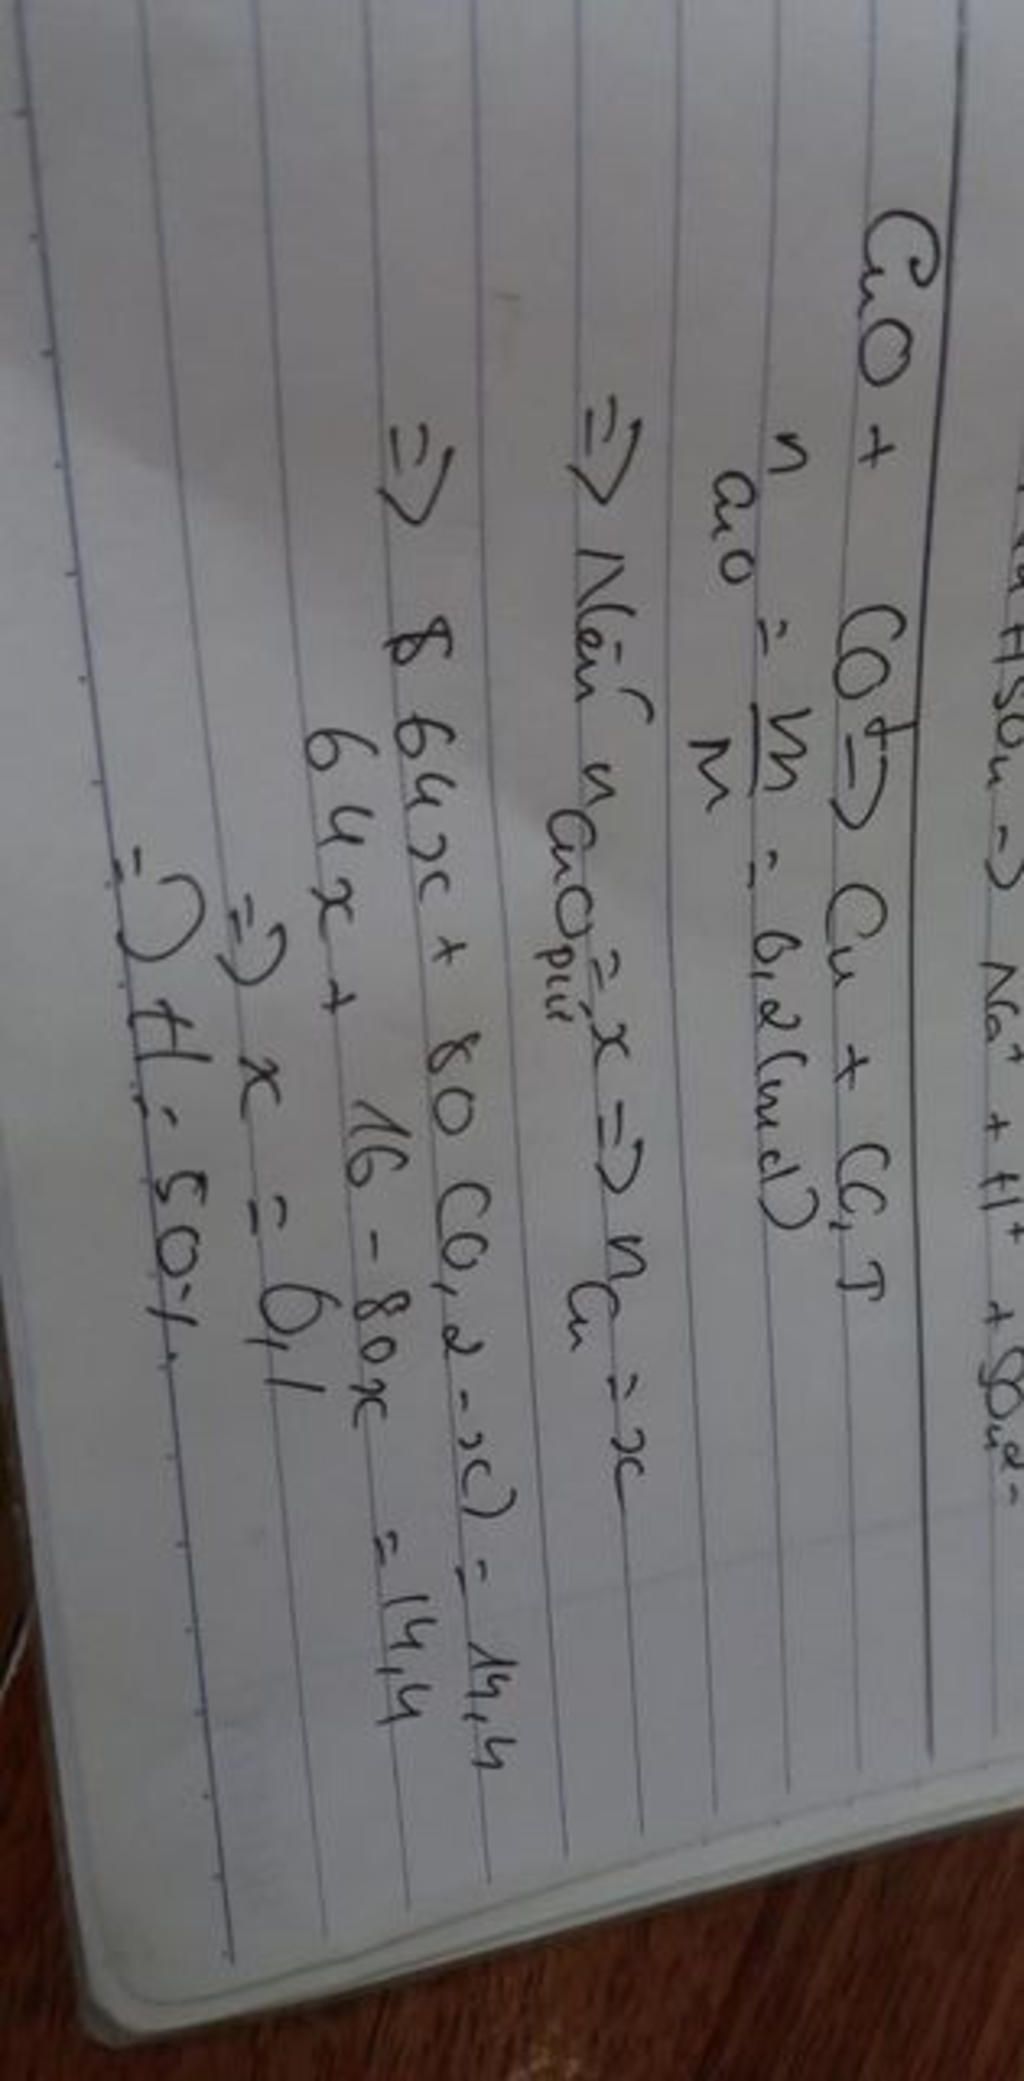 HSO4 -> Na+ + H+ + SO42-
CuO + CO t-> Cu + CO2↑
nCuO = m/M = 0,2 (mol)
=> Nếu nCuO pứ = x => nCu = x
=> 8 64x + 80 (0,2 - x) = 14,4
64x + 16 - 80x = 14,4
=> x = 0,1
=> H = 50%.